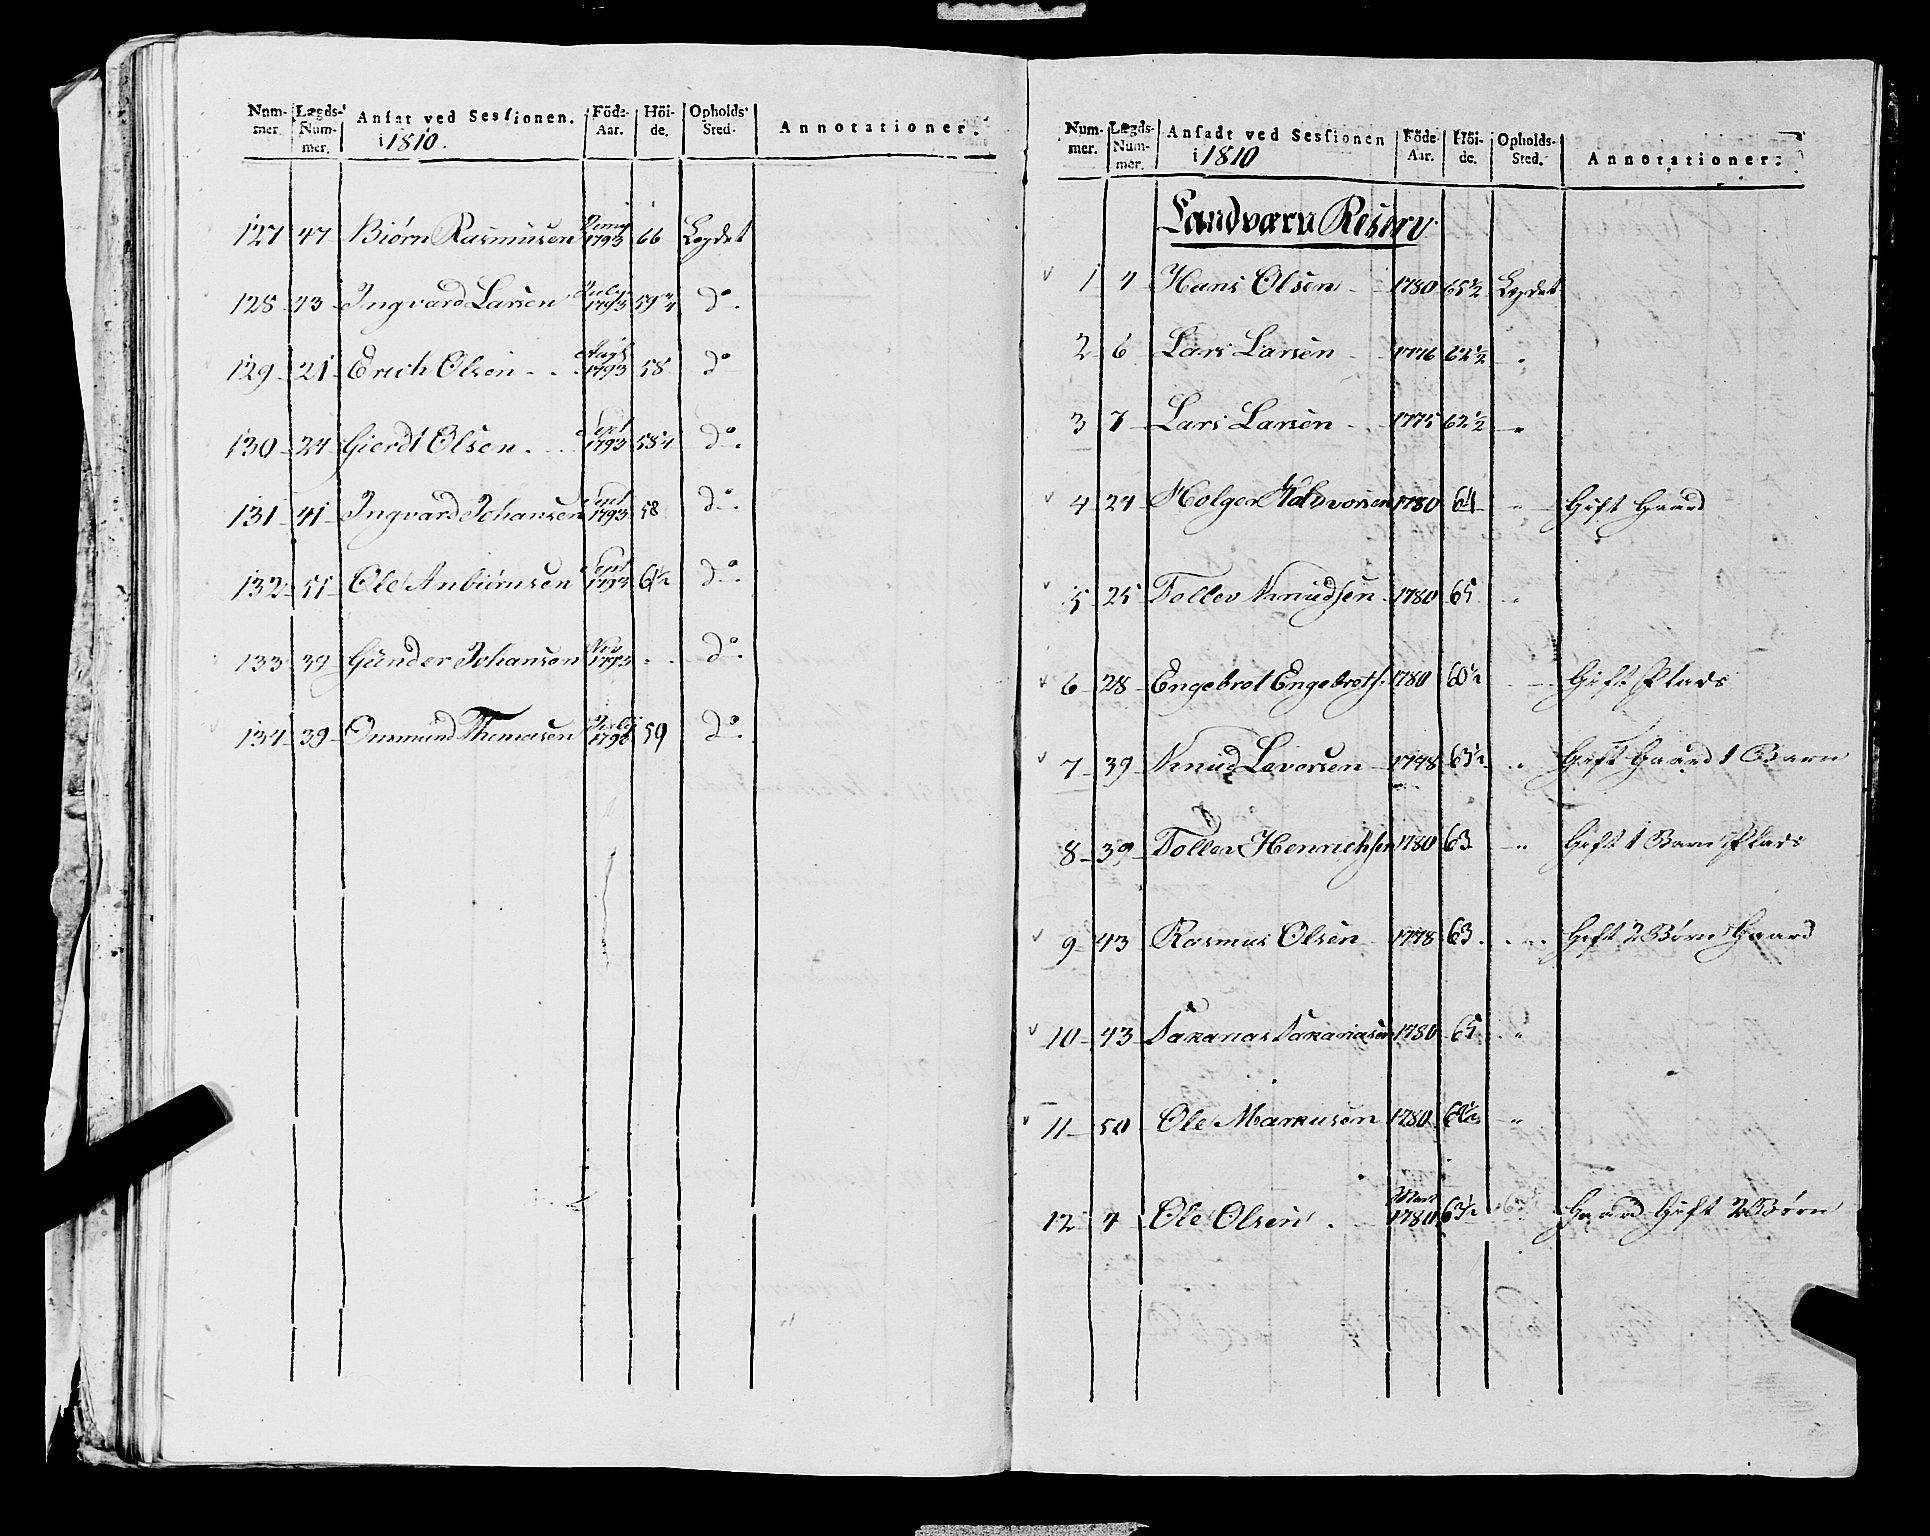 Num-mer. Lægds-Num-mer. Ansat ved Sessionen. i 1810. Föde-Aar. Höi-de. Opholds-Sted. Annotationer.
127 47 Biørn Rasmusen 1793 66 Legdet
128 43 Ingvard Larsen July 1793 59 3/4 do.
129 21 Erich Olsen Augt 1793 58 do
130 24 Gierdt Olsen Sept 1793 58 1/4 do.
131 41 Ingvard Johansen Sept 1793 58 do.
132 51 Ole Anbiørnsen Sept 1793 61 1/2 do.
133 39 Gunder Johansen Nov 1793 do.
134 39 Onsmund Thomasen July 1790 59 do.
Num-mer. Lægds-Num-mer. Ansadt ved Sessionen i 1810 Föde Aar. Höi-de. Opholds-Sted. Annotationer.
Landværn Reserv
v 1 4 Hans Olsen 1780 65 1/2 Legdet
2 6 Lars Larsen 1776 62 1/2 "
3 7 Lars Larsen 1775 62 1/2 "
v 4 24 Holger Halvorsen 1780 64 " Gift Gaard
v 5 25 Tollev Knudsen 1780 65 "
v 6 28 Engebret Engebrets. 1780 60 1/2 Gift Plads
v 7 39 Knud Levorsen 1778 63 1/2 " Gift Gaard 1 Barn
8 39 Tollev Henrichsen 1780 63 " Gift 1 Barn Plads
v 9 43 Rasmus Olsen 1778 63 " Gift 2 Børn Gaard
v 10 43 Sakarias Sakariasen 1780 65 "
v 11 50 Ole Markusen 1780 "
12 4 Ole Olsen 1780 63 1/2 Gaard Gift 2 Børn